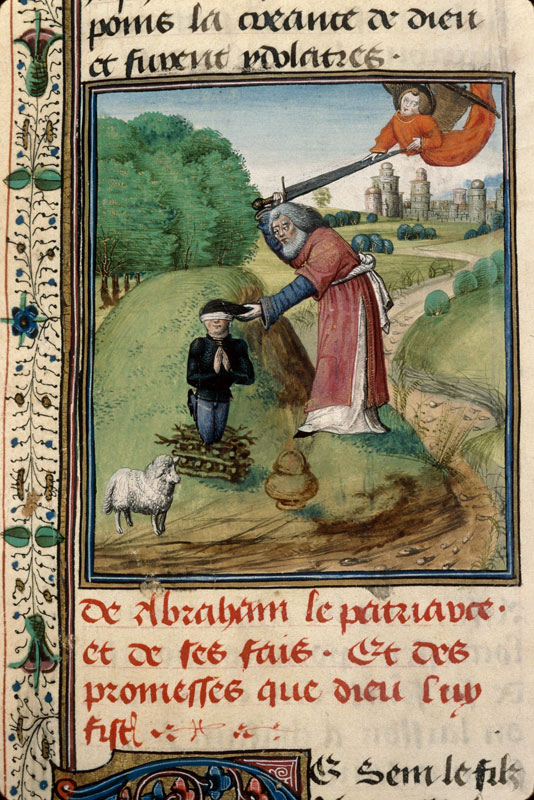 poins la creance de dieu
et furent ydolatres.
de Abraham le patriarce.
et de ses fais. Et des
promesses que dieu luy
fist
E Sem le filz